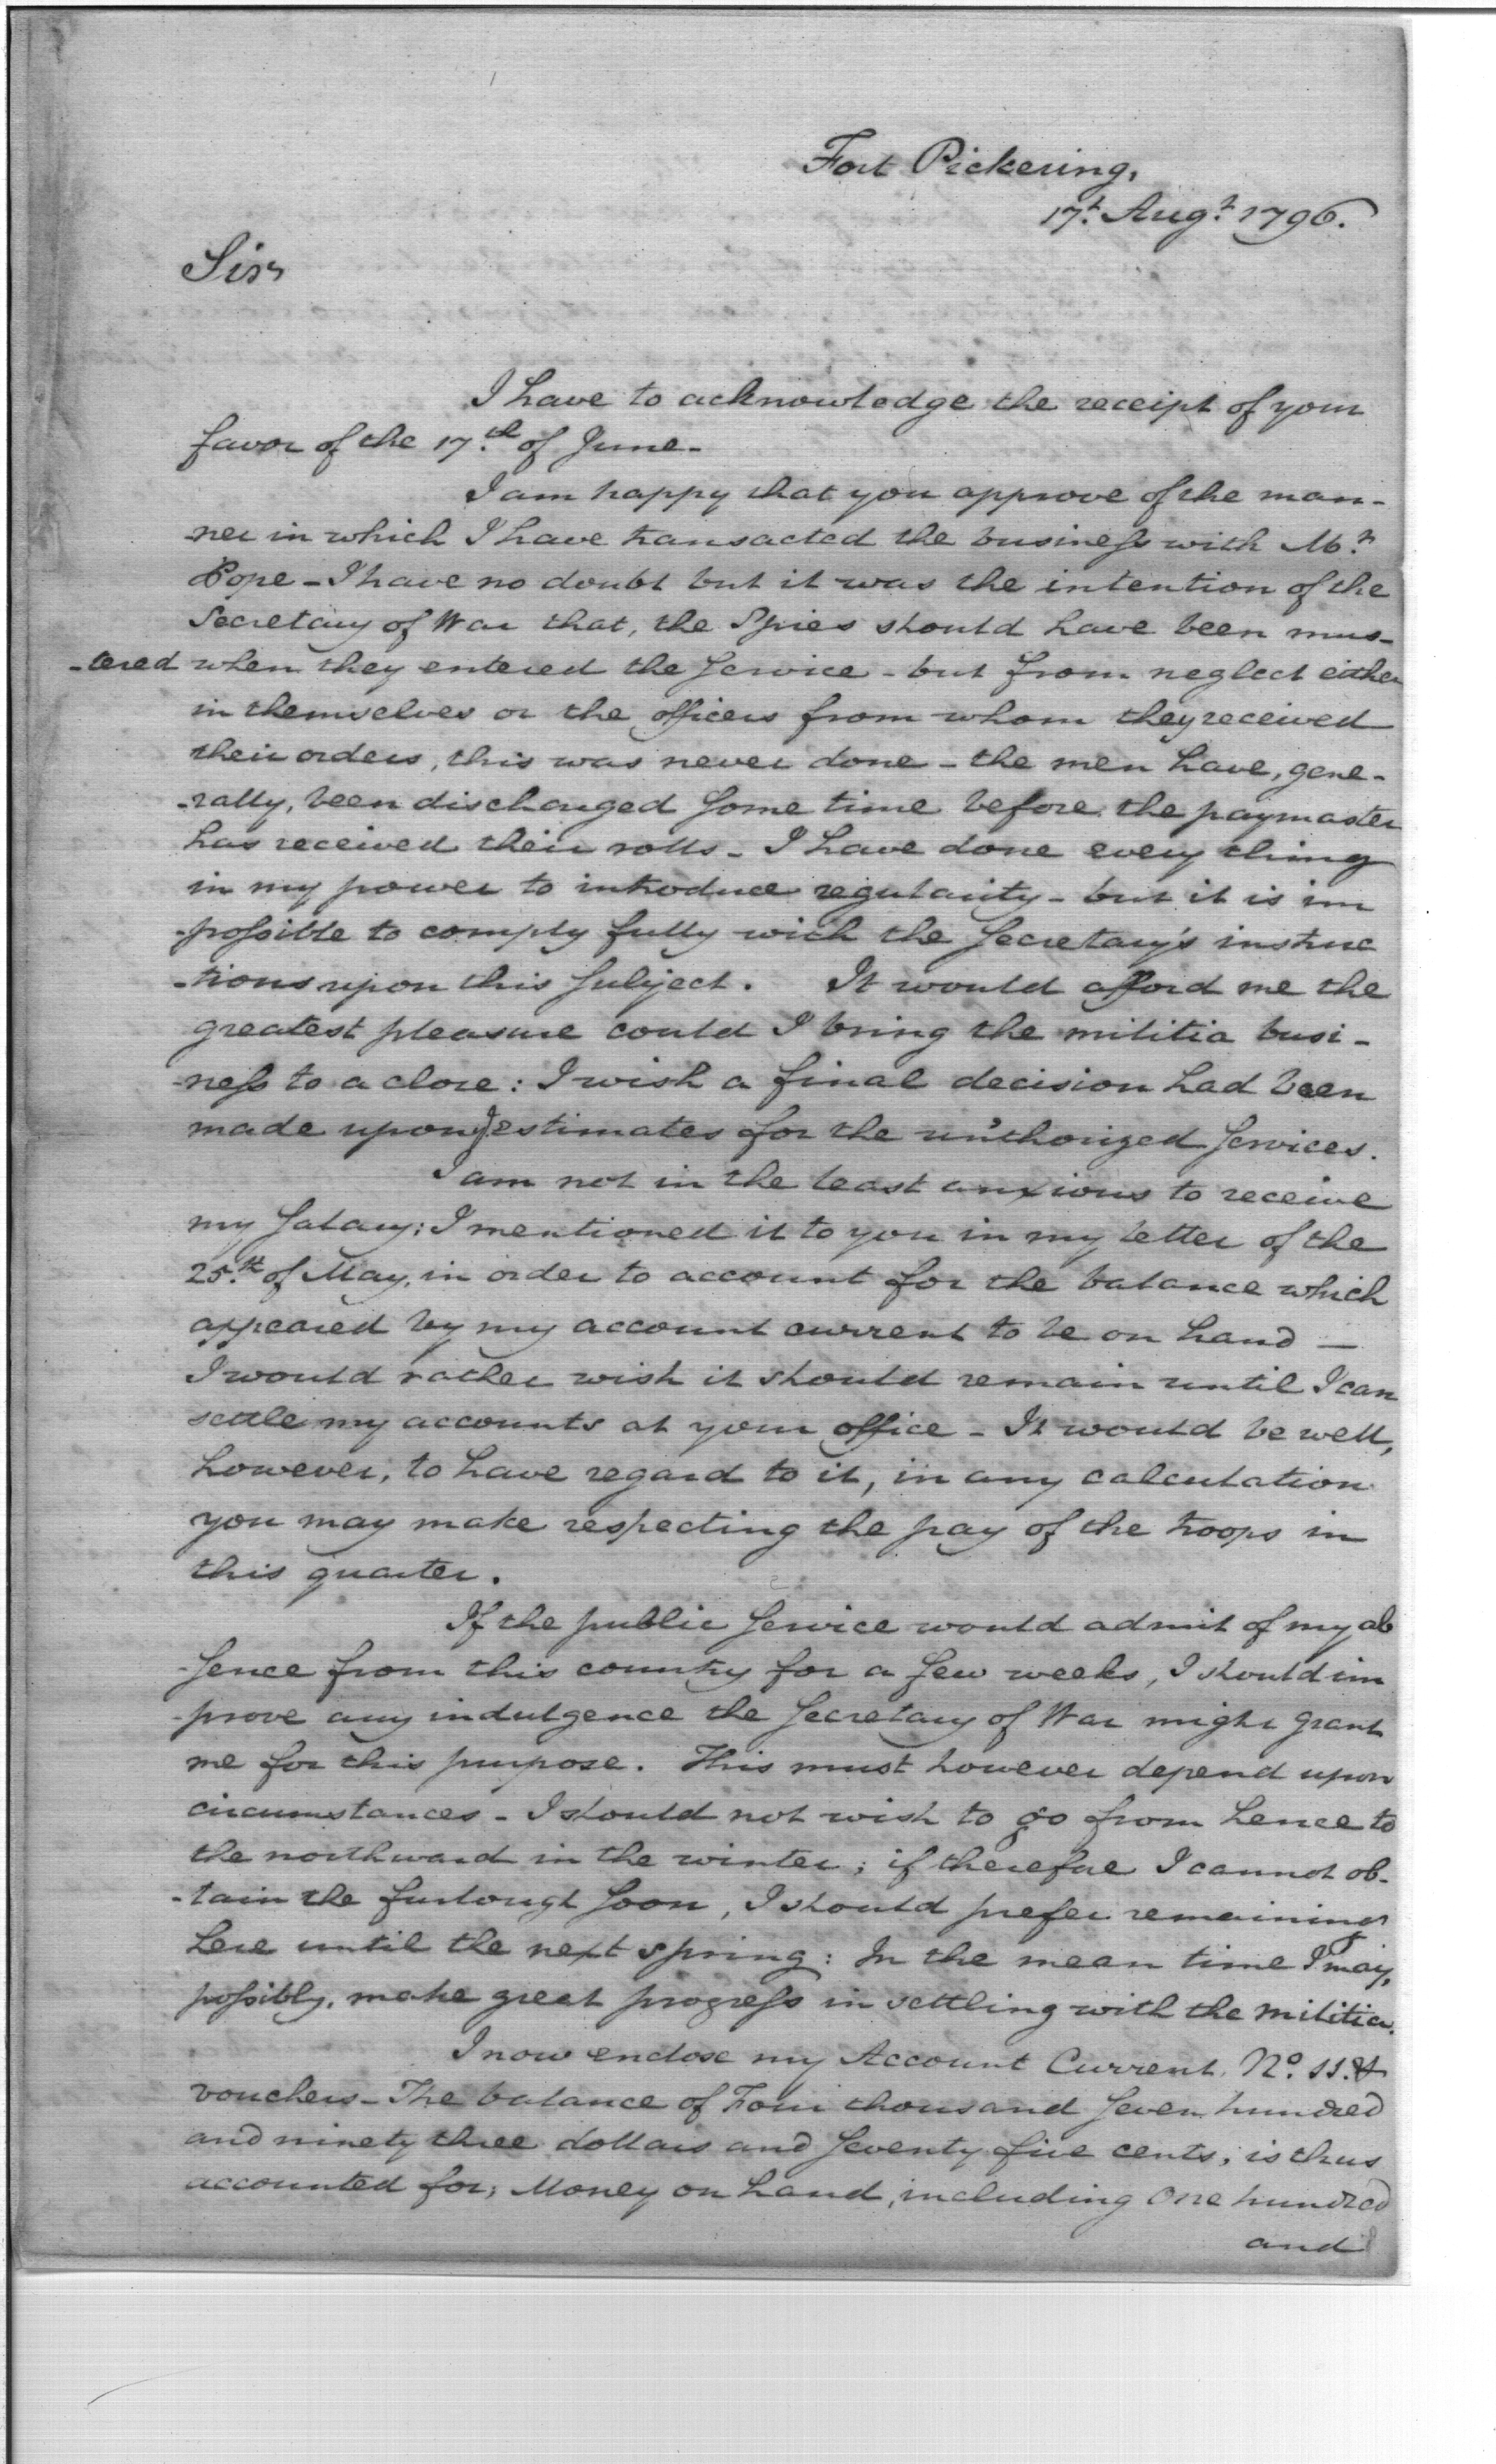 Fort Pickering,
17t. Augt. 1796.
Sir,
I have to acknowledge the receipt of your
favor of the 17.th of June-
I am happy that you approve of the man-
-ner in which I have transacted the business with Mr.
Pope - I have no doubt but it was the intention of the
Secretary of War that, the Spies should have been mus-
-tered when they entered the service - but from neglect either
in themselves or the officers from whom they received
their orders, this was never done - the men have, gene-
-rally, been discharged some time before the paymaster
has received their rolls - I have done every thing
in my power to introduce regularity - but it is im
-possible to comply fully with the Secretary's instruc
-tions upon this subject. It would afford me the
greatest pleasure could I bring the militia busi-
-ness to a close: I wish a final decision had been
made upon estimates for the un'thorized services.
I am not in the least anxious to receive
my salary; I mentioned it to you in my letter of the
25.th of May, in order to account for the balance which
appeared by my account current to be on hand —
I would rather wish it should remain until I can
settle my accounts at your office - It would be well,
however, to have regard to it, in any calculation
you may make respecting the pay of the troops in
this quarter.
If the public service would admit of my ab
-sence from this country for a few weeks, I should im
-prove any indulgence the Secretary of War might grant
me for this purpose. This must however depend upon
circumstances - I should not wish to go from hence to
the northward in the winter; if therefore I cannot ob-
-tain the furlough soon, I should prefer remaining
here until the next spring: In the mean time I may,
possibly, make great progress in settling with the militia.
I now enclose my Account Current, No. 11. &
vouchers - The balance of Four thousand seven hundred
and ninety three dollars and seventy five cents, is thus
accounted for; Money on hand, including One hundred
and